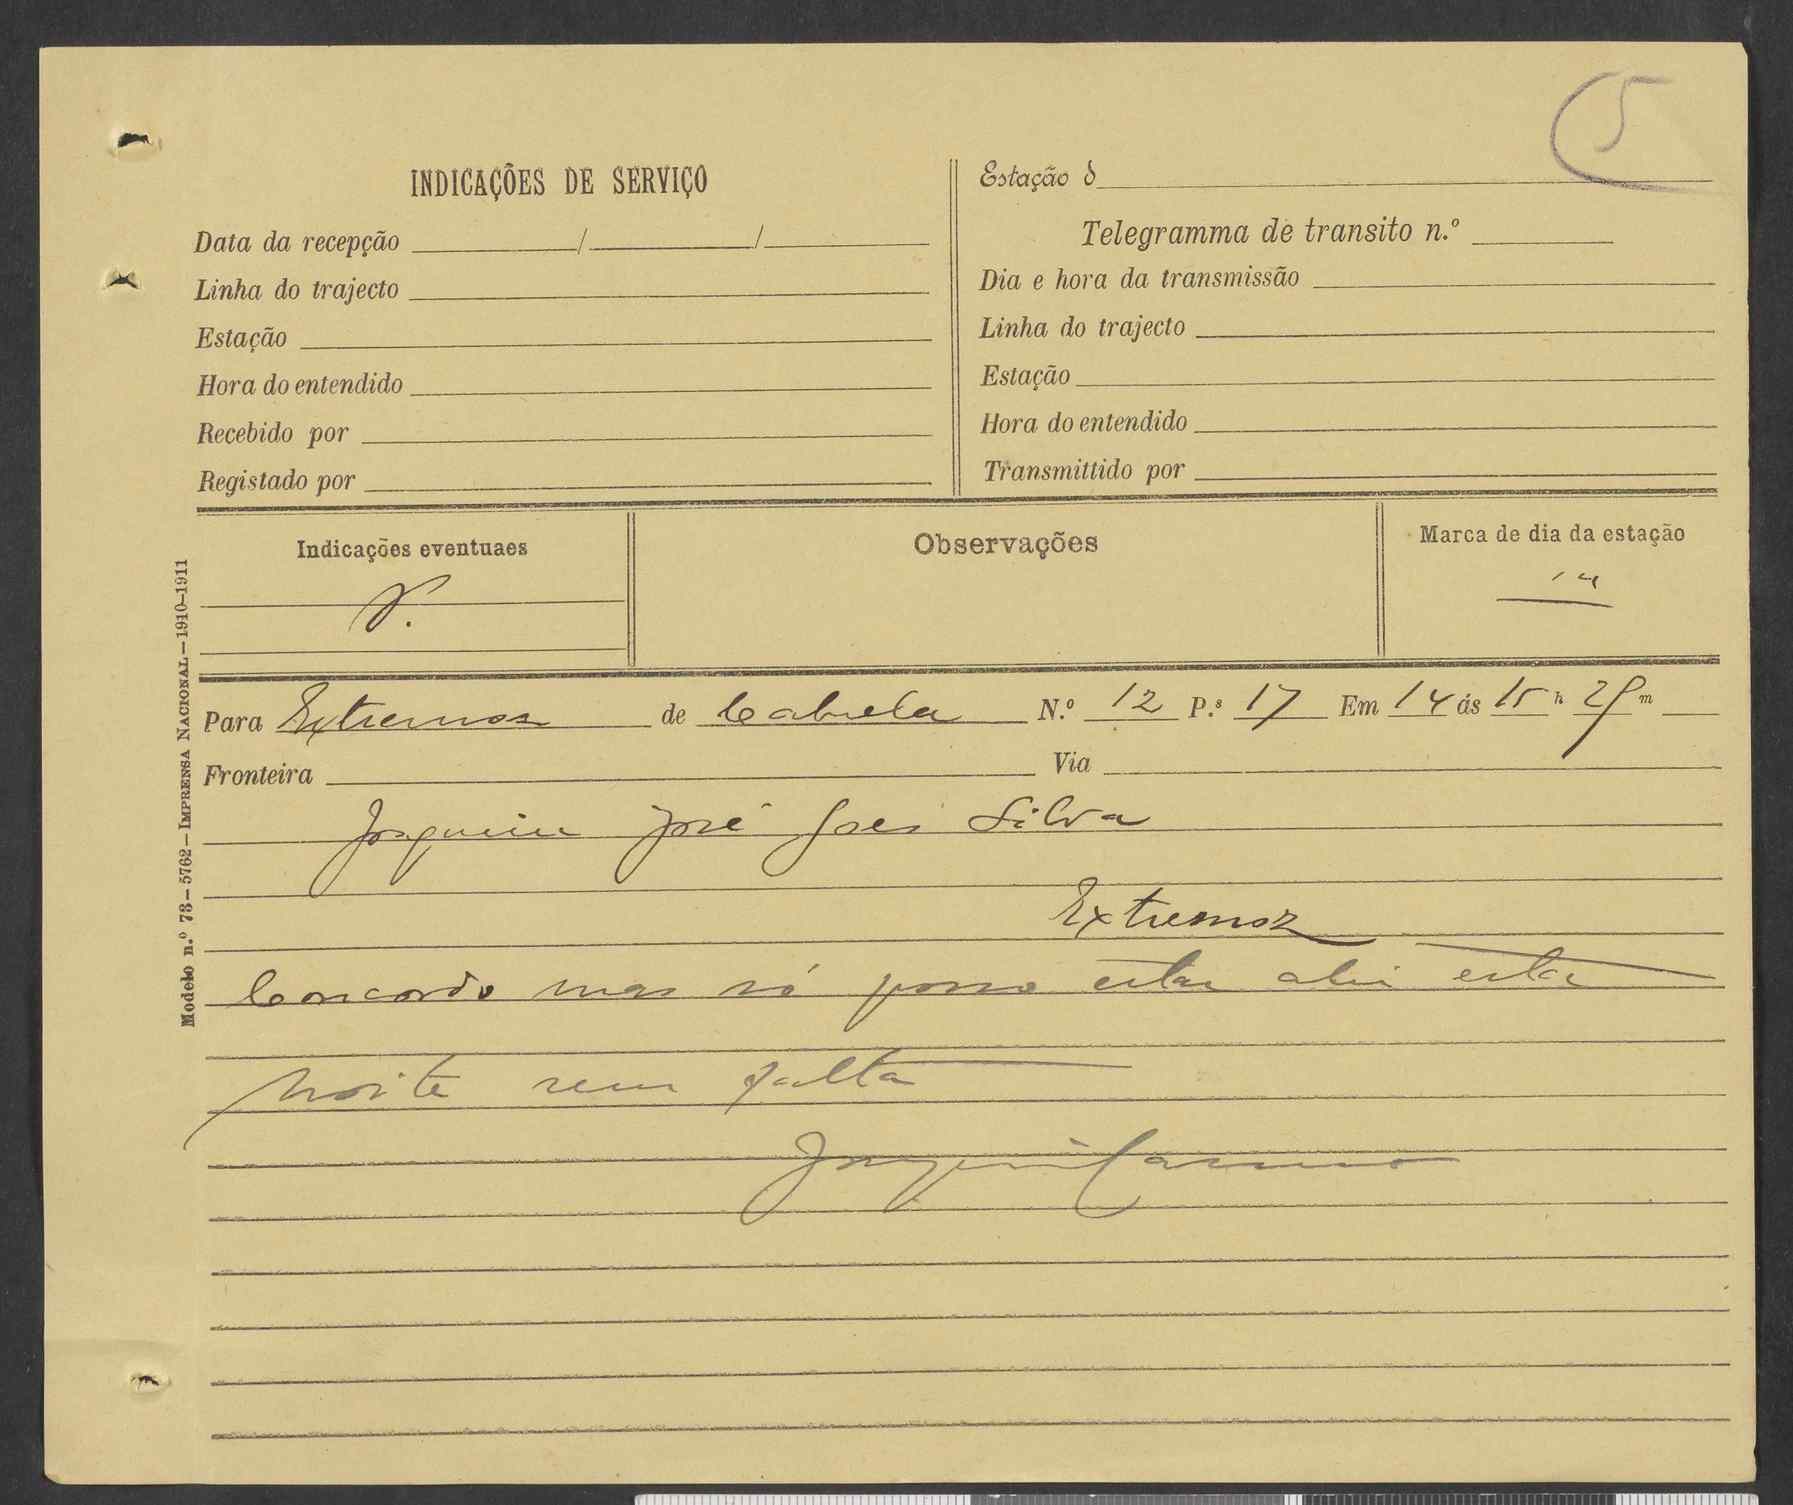 5
INDICAÇÕES DE SERVIÇO
Data da recepção / /
Linha do trajecto
Estação
Hora do entendido
Recebido por
Registado por
Estação d
Telegramma de transito n.º
Dia e hora da transmissão
Linha do trajecto
Estação
Hora do entendido
Transmittido por
Indicações eventuaes
Observações
Marca de dia da estação
Modelo n.º 73 — 5762 — IMPRENSA NACIONAL — 1910-1911
Para Extremoz de Cabrela N.º 12 P.s 17 Em 14 ás 15 h 25 m
Fronteira Via
Joaquim José Silva
Extremoz
Concordo mas só posso estar ahi esta
noite sem falta
Joaquim